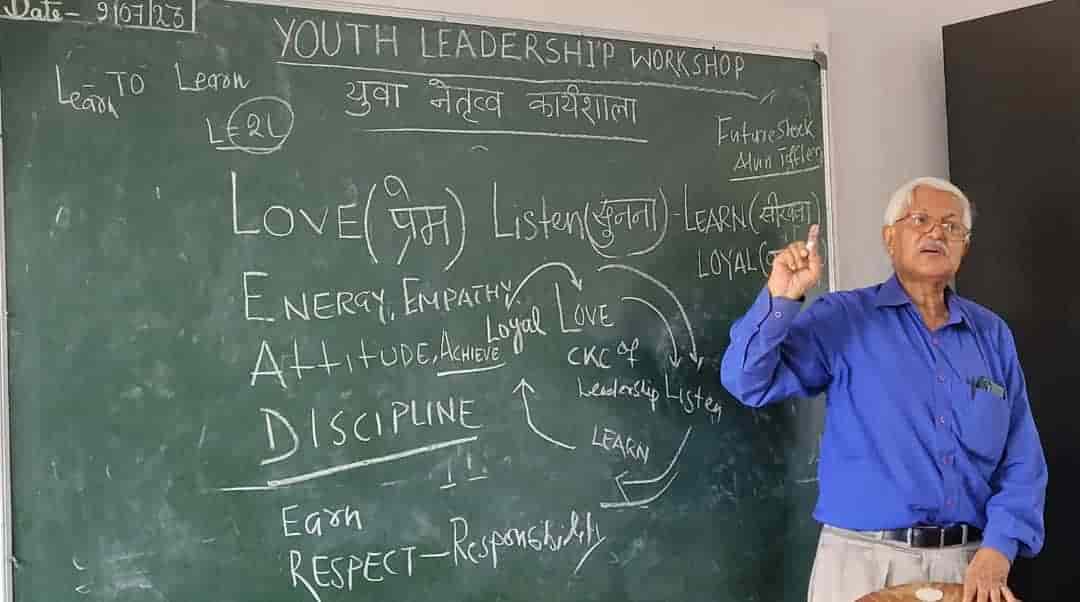 Date - 9/07/23
YOUTH LEADERSHIP WORKSHOP
Learn To Learn
युवा नेतृत्व कार्यशाला
Future Shock
Alvin Toffler
LOVE (प्रेम) Listen (सुनना) - LEARN (सीखना)
LOYAL
ENERGY, EMPATHY
Loyal LOVE
ATTITUDE, ACHIEVE
CKC of
Leadership Listen
DISCIPLINE
LEARN
Earn
RESPECT - Responsibility